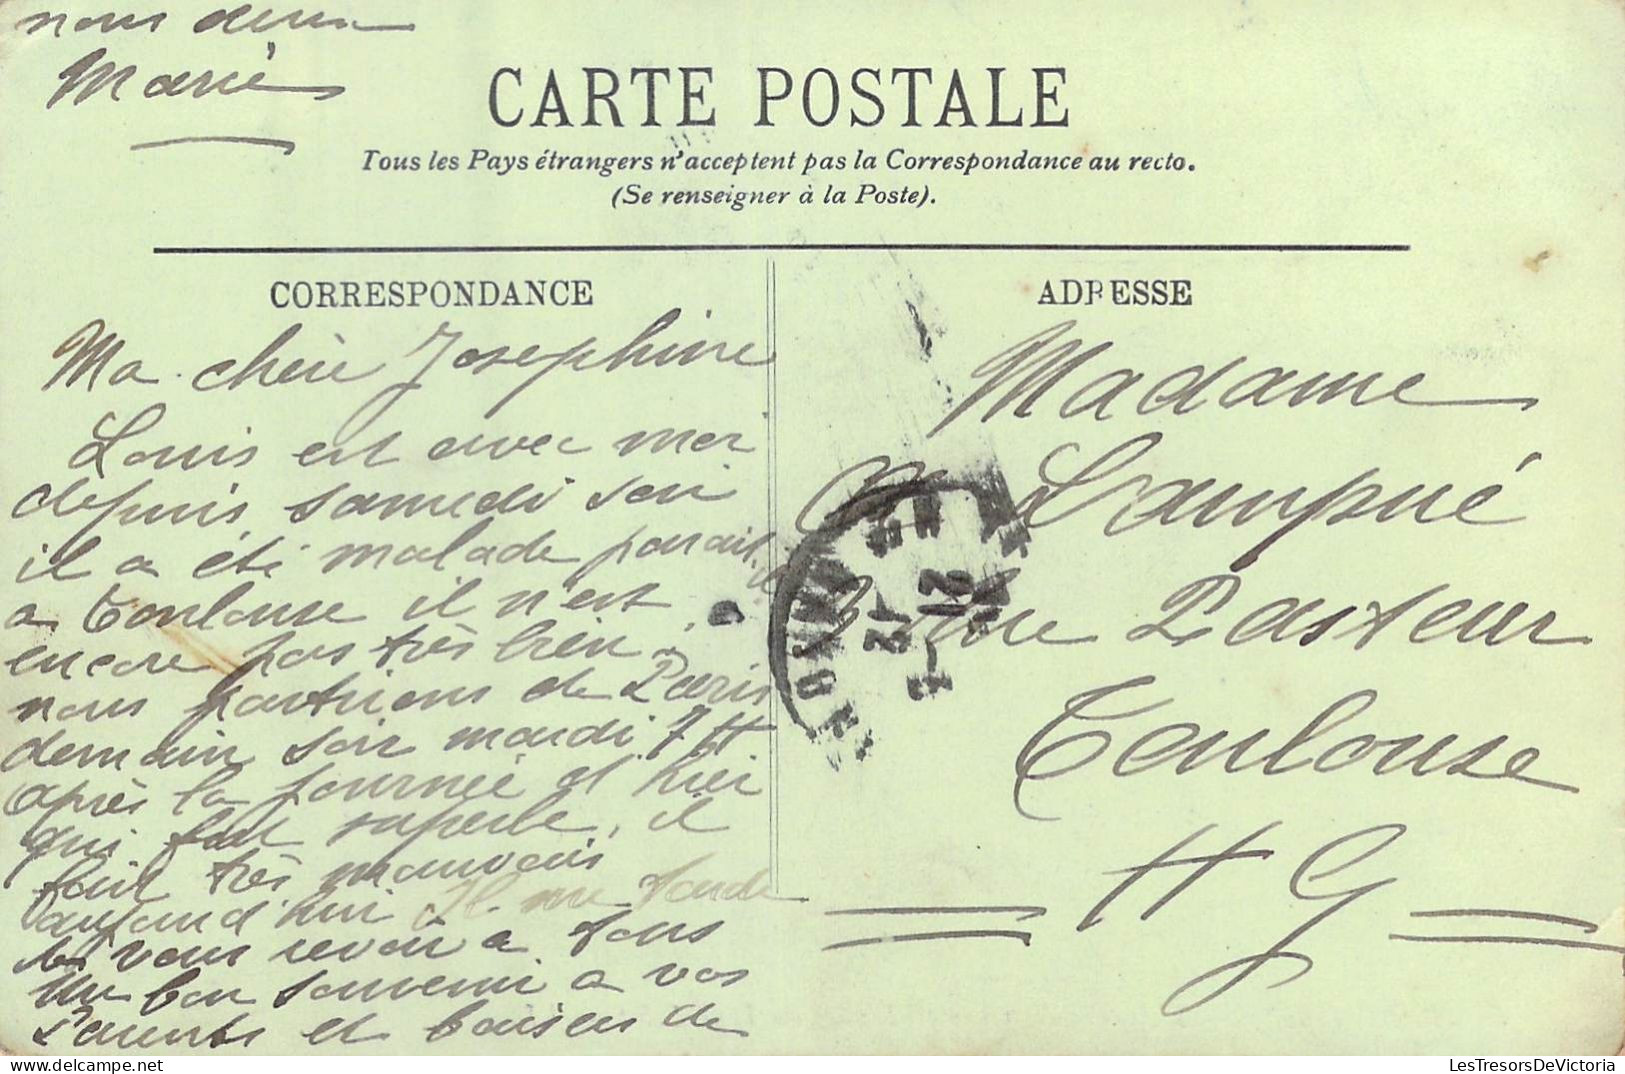 nous deux
Marie
CARTE POSTALE
Tous les Pays étrangers n'acceptent pas la Correspondance au recto.
(Se renseigner à la Poste).
CORRESPONDANCE
Ma chère Josephine
Louis est avec moi
depuis samedi soir
il a été malade parait il
a Toulouse il n'est
encore pas très bien
nous partrions de Paris
demain soir mardi 7 H
après la journée d'hier
qui fut superbe, il
fait très mauvais
aujourd'hui Il me tarde
de vous revoir a tous
Un bon souvenir a vos
Parents et baisers de
ADRESSE
Madame
Lampué
rue Pasteur
Toulouse
H G
LesTresorsDeVictoria